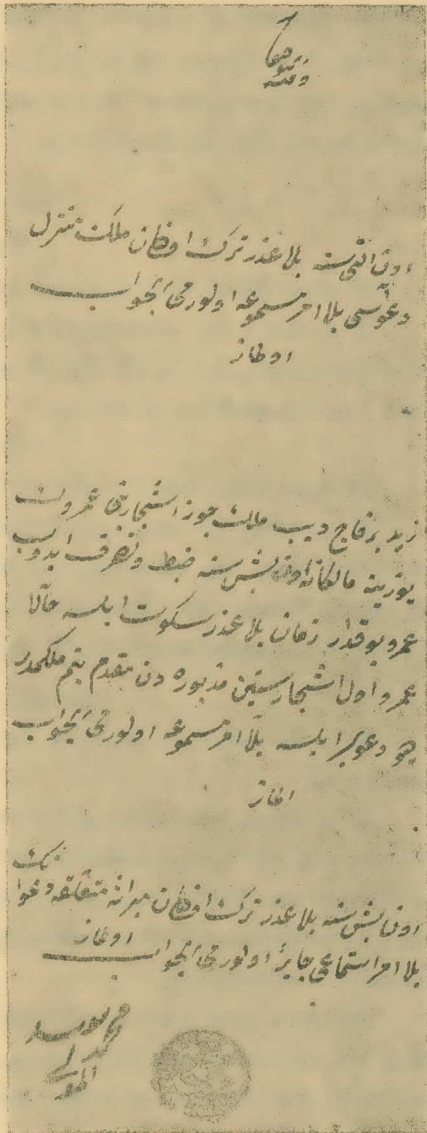 اون التی سنه بلا عذر ترك اولنان ملك منزل
دعواسی بلا امر مسموعه اولورمی الجواب
اولماز
زید بر قاچ دیب ملك جوز اشجارینی عمروك
یوزینه مالكانه اون بش سنه ضبط و تصرف ایدوب
عمرو بو قدر زمان بلا عذر سكوت ایلسه حالا
عمرو اول اشجار سنین مذبوره دن مقدم بنم ملكمدر
دیو دعوی ایلسه بلا امر مسموعه اولورمی الجواب
اولماز
اون بش سنه بلا عذر ترك اولنان میراثه متعلقه دعوانك
بلا امر استماعی جایز اولورمی الجواب
اولماز
محمد